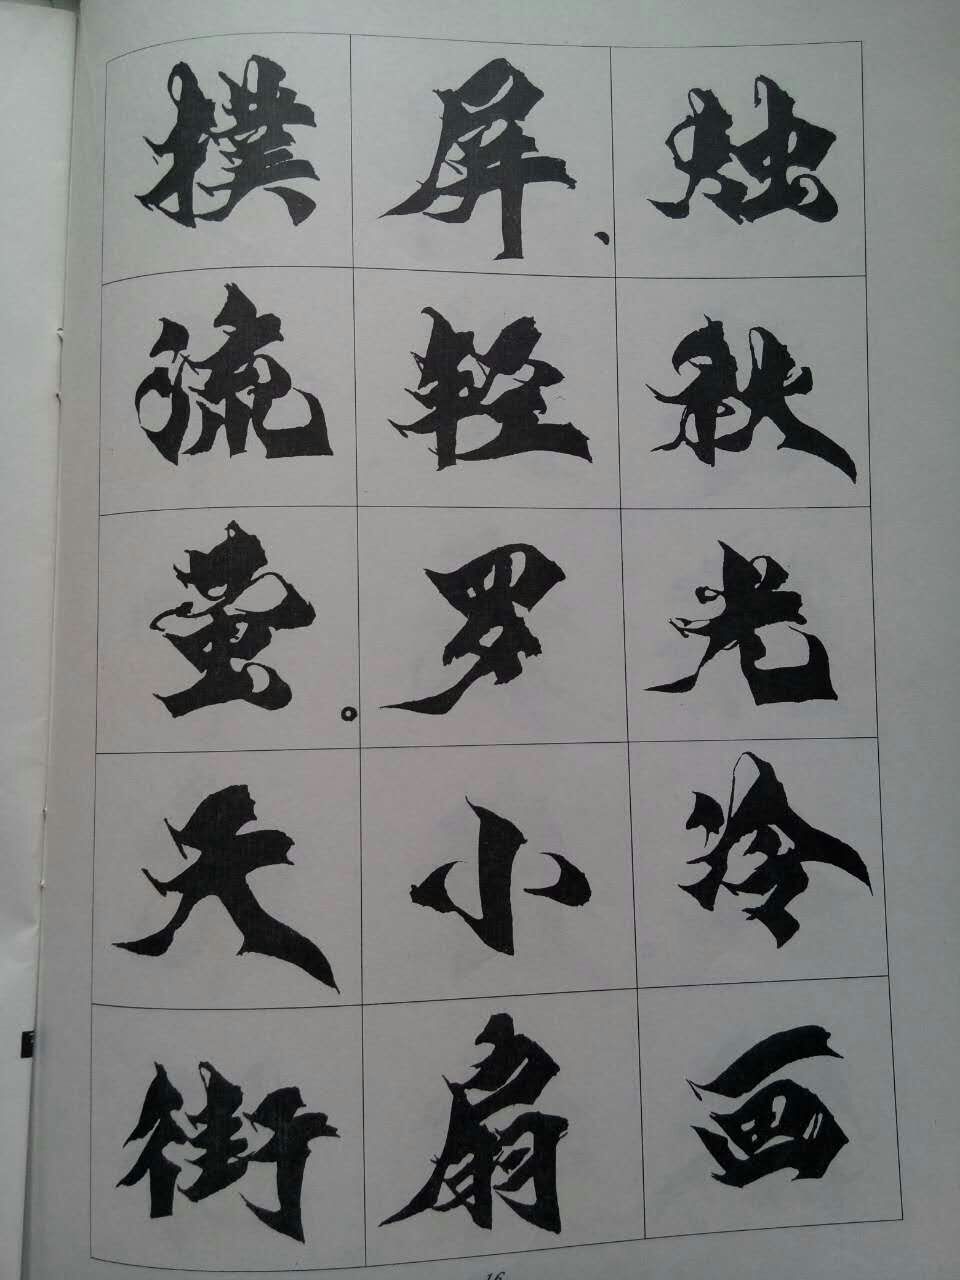 烛秋光冷画
屏、轻罗小扇
撲流萤。天街
16